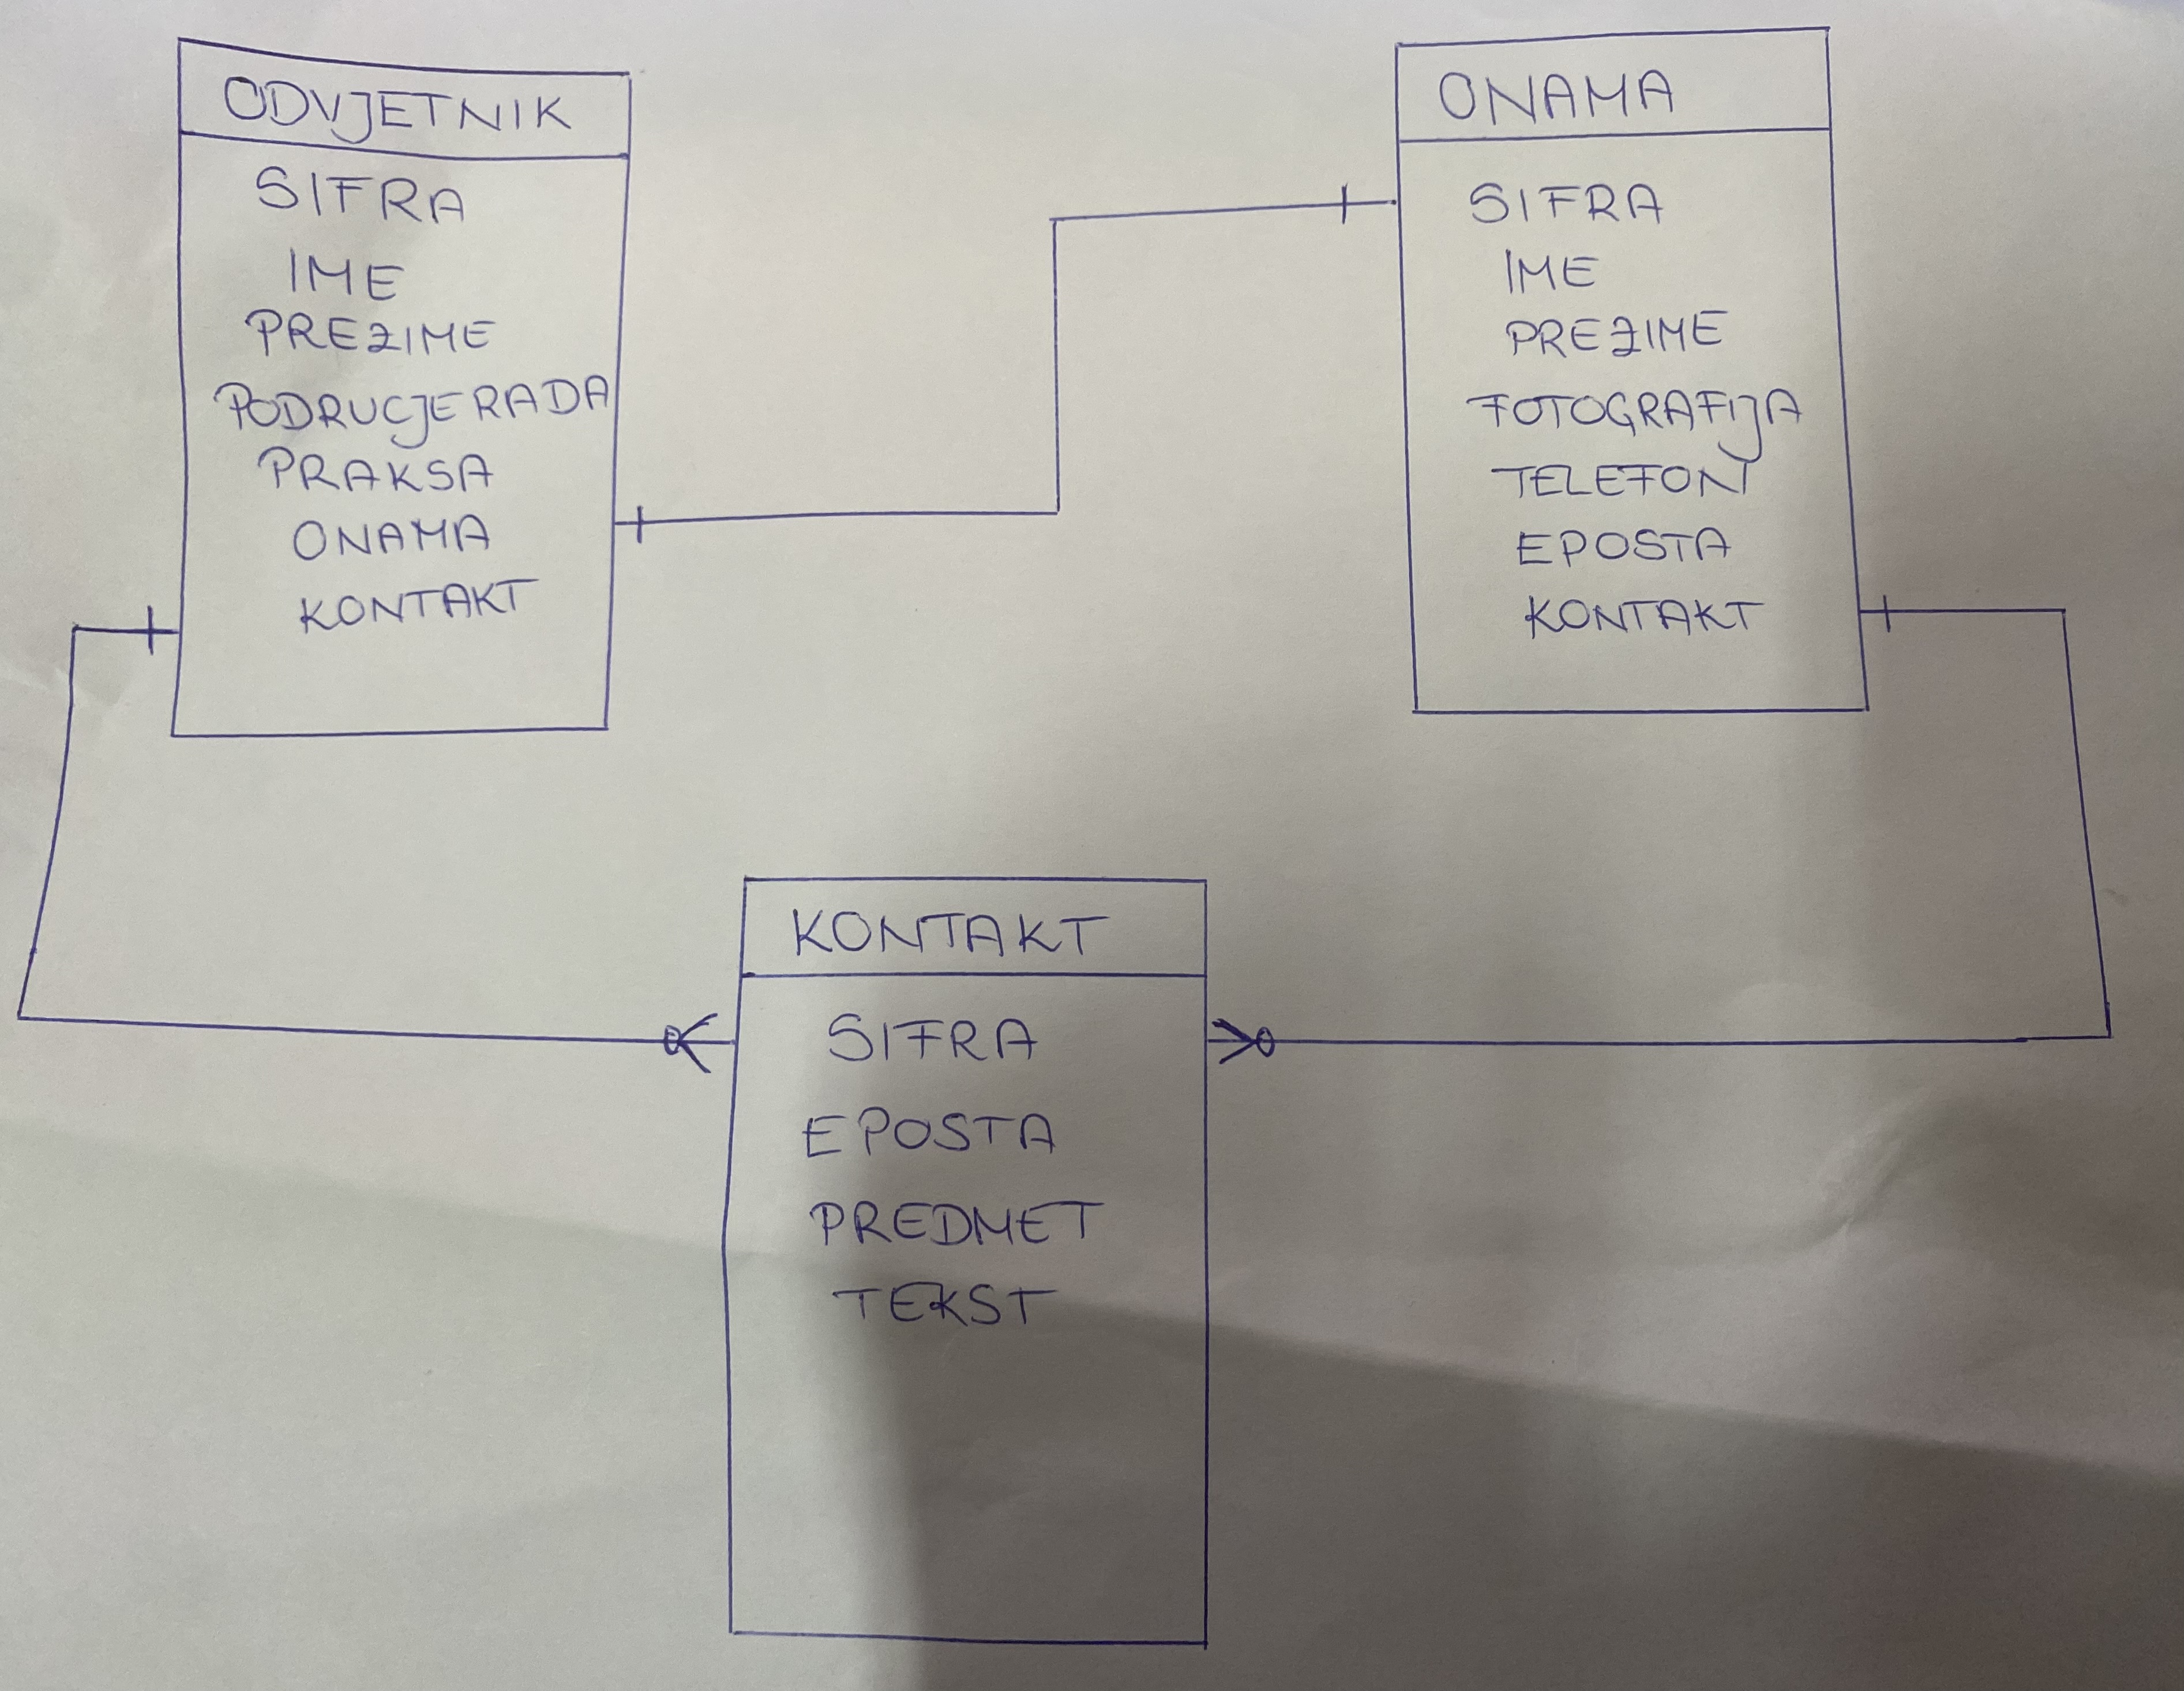 ODVJETNIK
SIFRA
IME
PREZIME
PODRUCJERADA
PRAKSA
ONAMA
KONTAKT
ONAMA
SIFRA
IME
PREZIME
FOTOGRAFIJA
TELEFON
EPOSTA
KONTAKT
KONTAKT
SIFRA
EPOSTA
PREDMET
TEKST